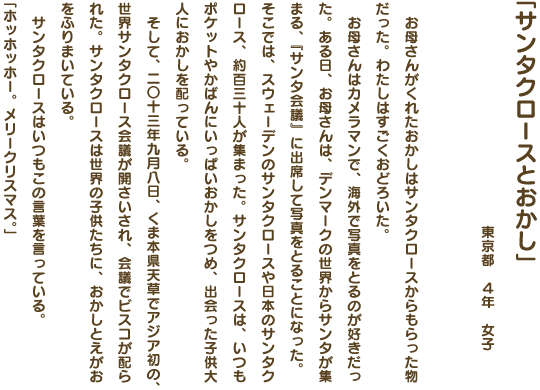 「サンタクロースとおかし」
東京都　４年　女子
　お母さんがくれたおかしはサンタクロースからもらった物
だった。わたしはすごくおどろいた。
　お母さんはカメラマンで、海外で写真をとるのが好きだっ
た。ある日、お母さんは、デンマークの世界からサンタが集
まる、『サンタ会議』に出席して写真をとることになった。
そこでは、スウェーデンのサンタクロースや日本のサンタク
ロース、約百三十人が集まった。サンタクロースは、いつも
ポケットやかばんにいっぱいおかしをつめ、出会った子供大
人におかしを配っている。
　そして、二〇十三年九月八日、くま本県天草でアジア初の、
世界サンタクロース会議が開さいされ、会議でビスコが配ら
れた。サンタクロースは世界の子供たちに、おかしとえがお
をふりまいている。
　サンタクロースはいつもこの言葉を言っている。
「ホッホッホー。メリークリスマス。」